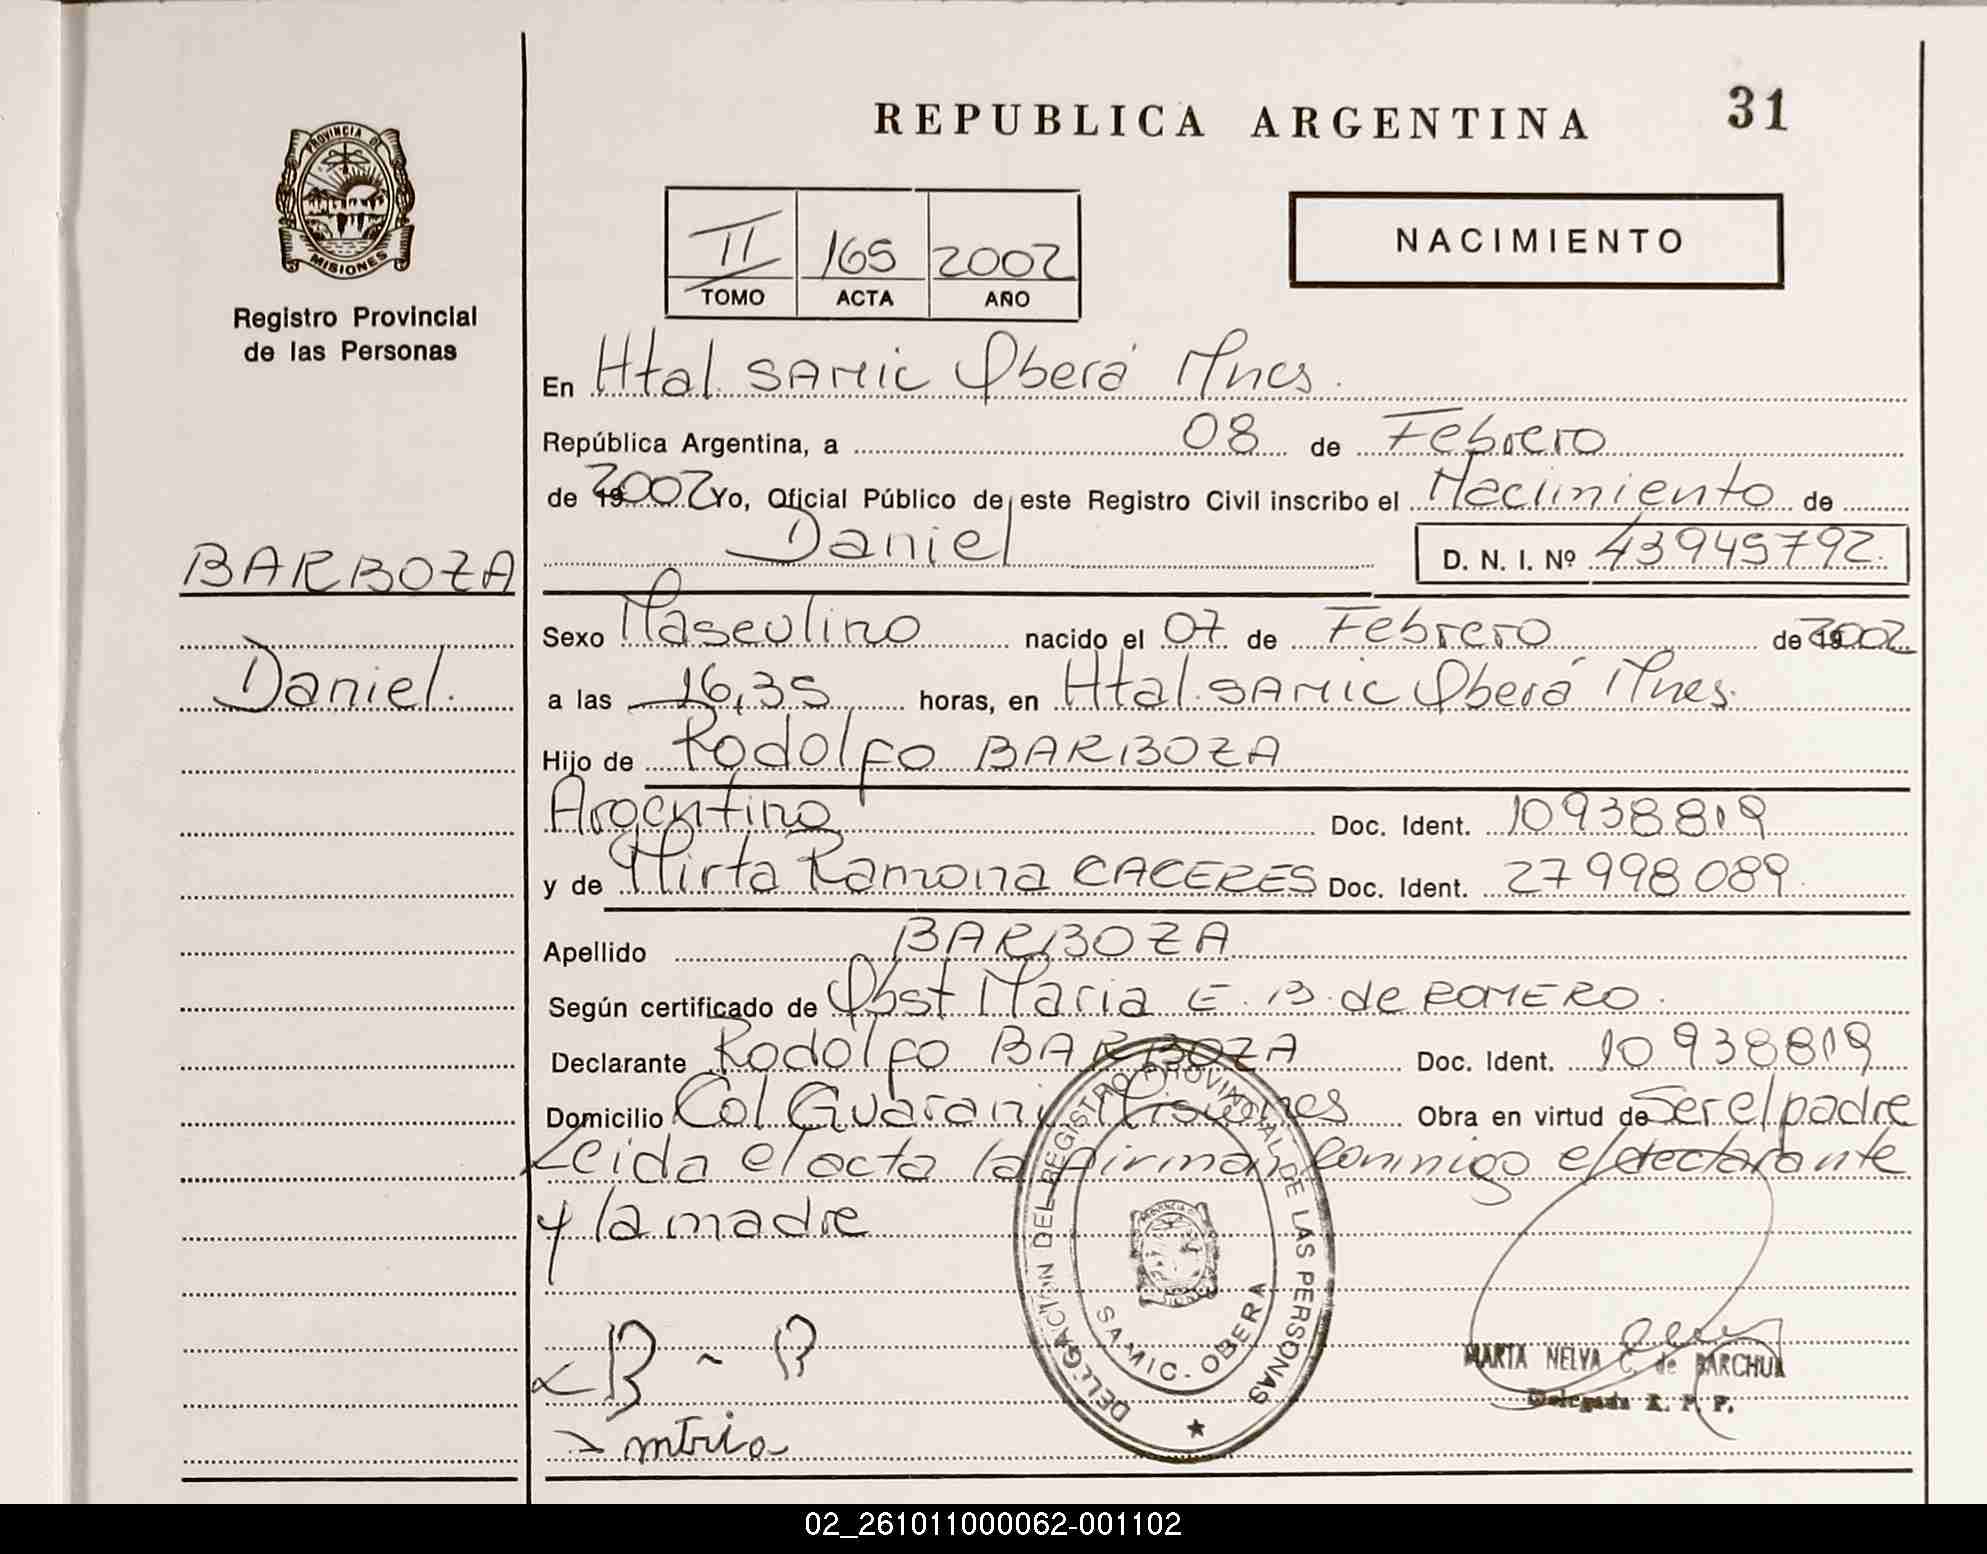 REPUBLICA ARGENTINA 31
PROVINCIA DE
MISIONES
Registro Provincial
de las Personas
II 165 2002
TOMO ACTA AÑO
NACIMIENTO
En Htal. SAMIC Oberá Mnes.
República Argentina, a 08 de Febrero
de 2002 Yo, Oficial Público de este Registro Civil inscribo el Nacimiento de
Daniel D. N. I. Nº 43945792.
BARBOZA
Daniel.
Sexo Masculino nacido el 07 de Febrero de 2002
a las 16,35 horas, en Htal. SAMIC Oberá Mnes.
Hijo de Rodolfo BARBOZA
Argentino Doc. Ident. 10938819
y de Mirta Ramona CACERES Doc. Ident. 27998089.
Apellido BARBOZA
Según certificado de Obst Maria E. B. de ROMERO.
Declarante Rodolfo BARBOZA Doc. Ident. 10938819
Domicilio Col Guarani Misiones Obra en virtud de Ser el padre
Leida el acta la firman conmigo el declarante
y la madre
DELEGACION DEL REGISTRO PROVINCIAL DE LAS PERSONAS
SAMIC - OBERA
MARTA NELVA C. de BARCHUK
Delegada R. P. P.
02_261011000062-001102